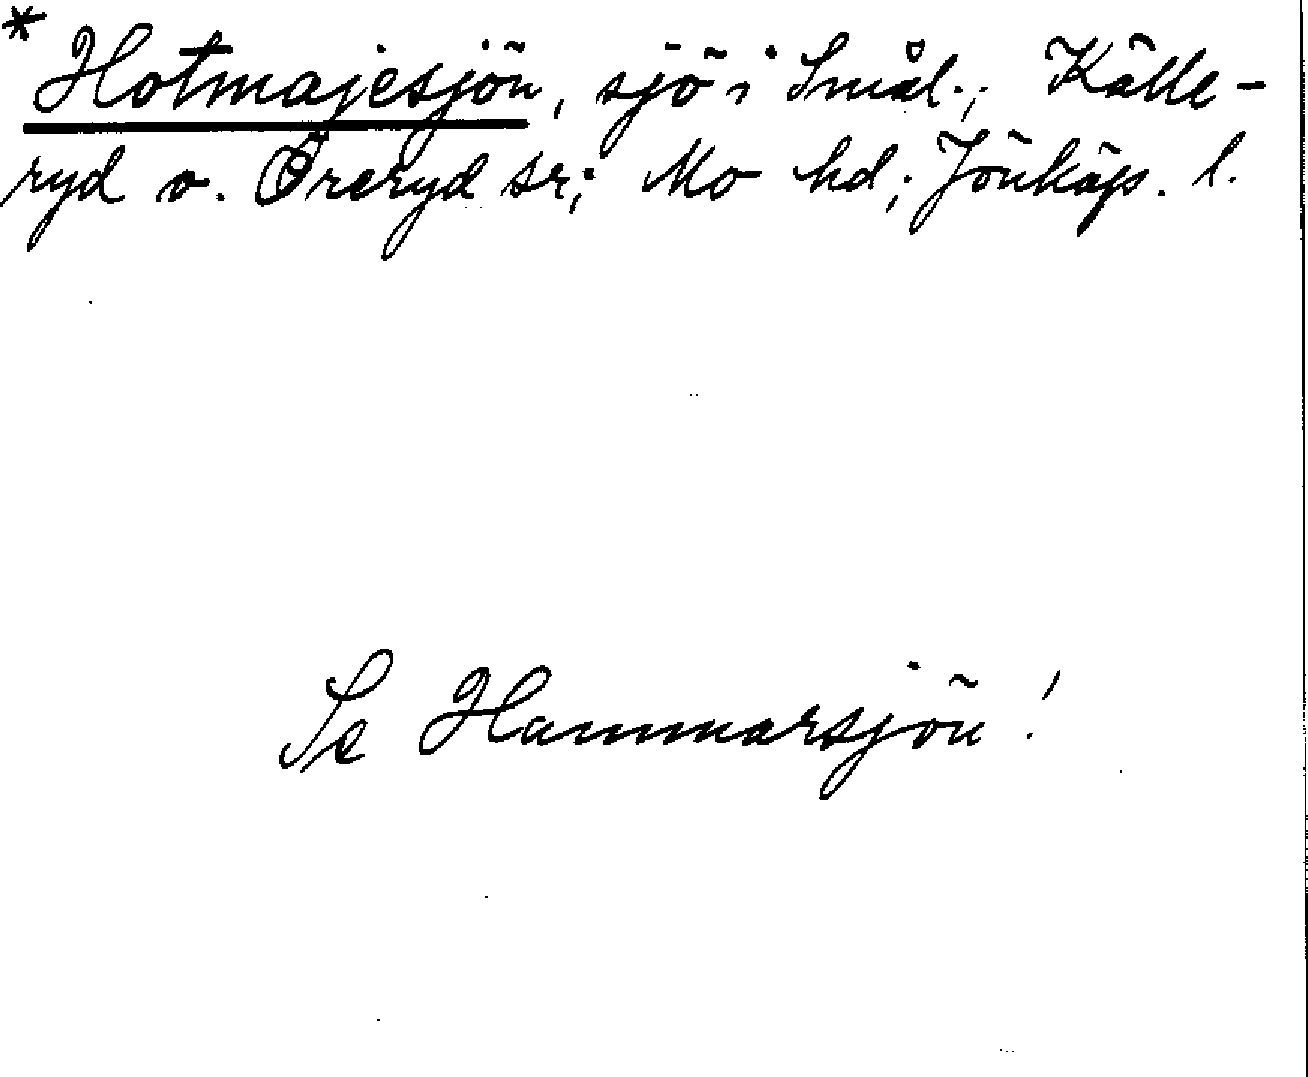 * Hotmajesjön, sjö i Smål.; Källe-
ryd o. Öreryd sr; Mo hd; Jönköp. l.
Se Hammarsjön!